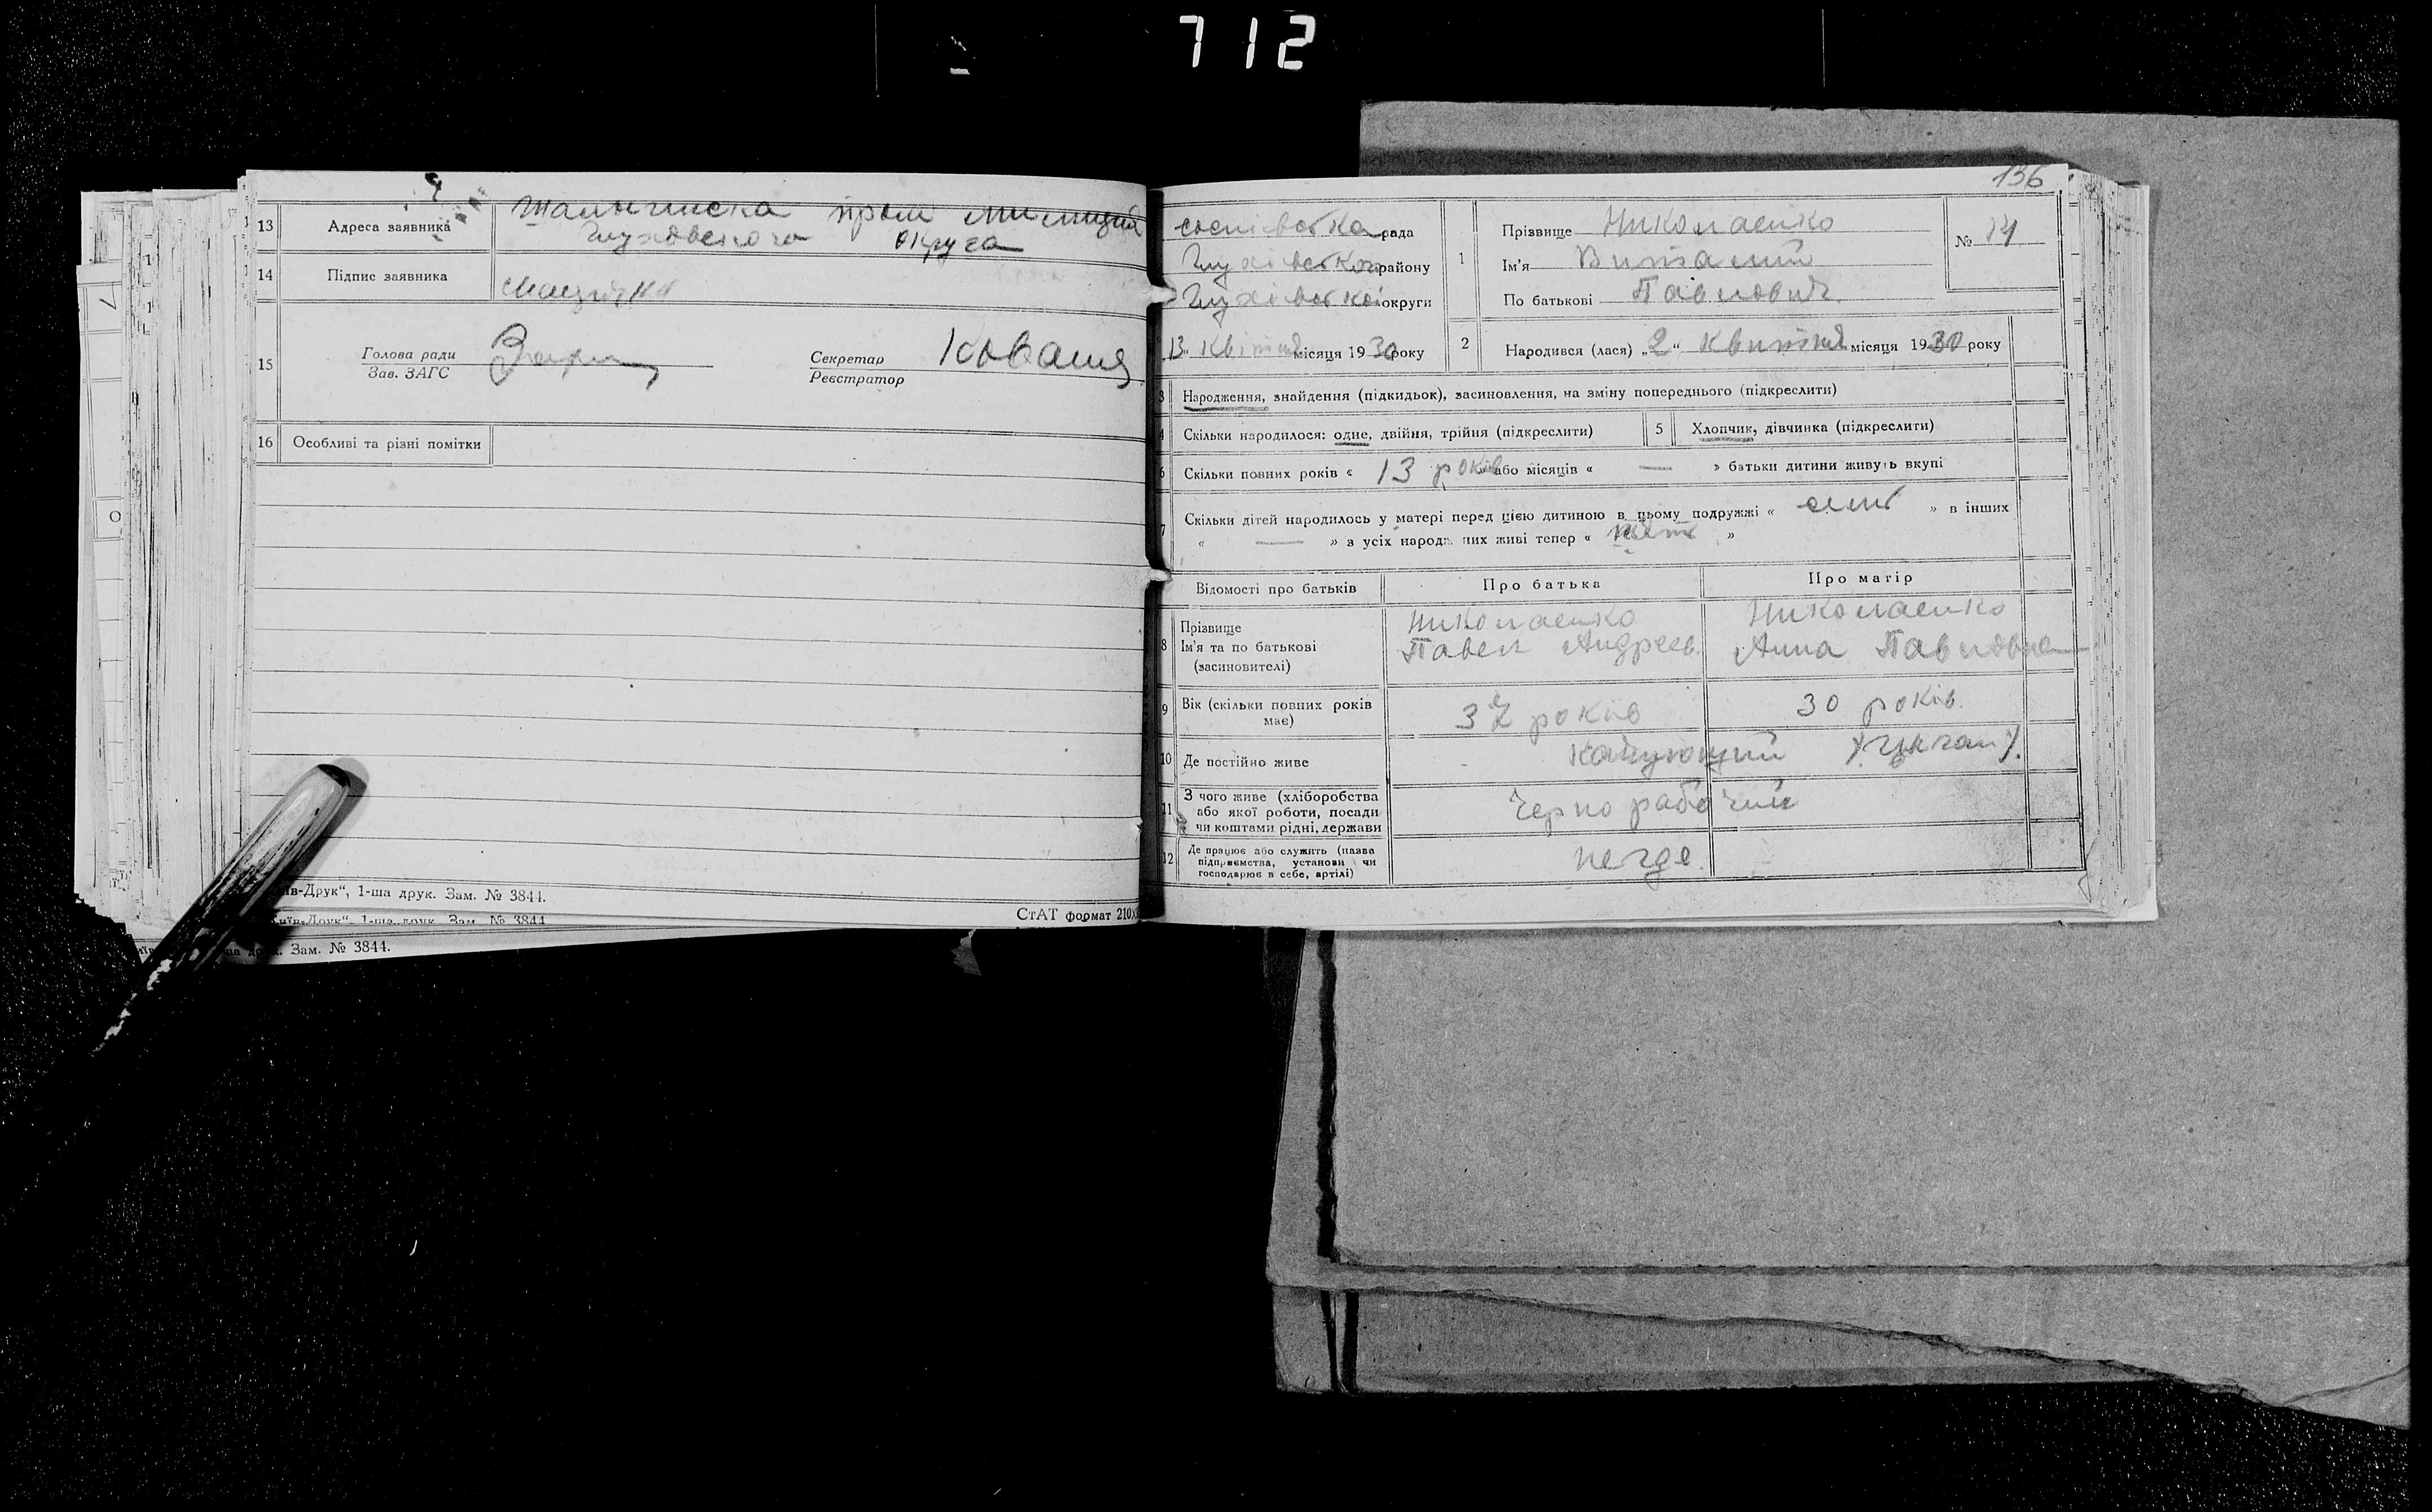 712
13 Адреса заявника
округа
14 Підпис заявника
15 Голова ради
Зав. ЗАГС
Секретар
Реєстратор
16 Особливі та різні помітки
їв-Друк“, 1-ша друк. Зам. № 3844.
Київ-Друк“, 1-ша друк. Зам. № 3844
СтАТ формат 210
ша друк. Зам. № 3844.
136
рада
Глухівської району
Глухівської округи
13 квітня місяця 1930 року
1 Прізвище Николаенко
Ім’я Виталий
По батькові Павлович
№ 14
2 Народився (лася) „2“ квитня місяця 1930 року
3 Народження, знайдення (підкидьок), засиновлення, на зміну попереднього (підкреслити)
4 Скільки народилося: одне, двійня, трійня (підкреслити)
5 Хлопчик, дівчинка (підкреслити)
6 Скільки повних років « 13 років » або місяців « — » батьки дитини живуть вкупі
7 Скільки дітей народилось у матері перед цією дитиною в цьому подружжі « » в інших
« — » з усіх народжених живі тепер « »
Відомості про батьків Про батька Про матір
8 Прізвище
Ім’я та по батькові
(засиновителі)
Николаенко
Павел Андреев.
Николаенко
Анна Павловна
9 Вік (скільки повних років
має)
років
30 років.
10 Де постійно живе
кочующий
11 З чого живе (хліборобства
або якої роботи, посади
чи коштами рідні, держави
чернорабочий
12 Де працює або служить (назва
підприємства, установи чи
господарює в себе, артілі)
негде.